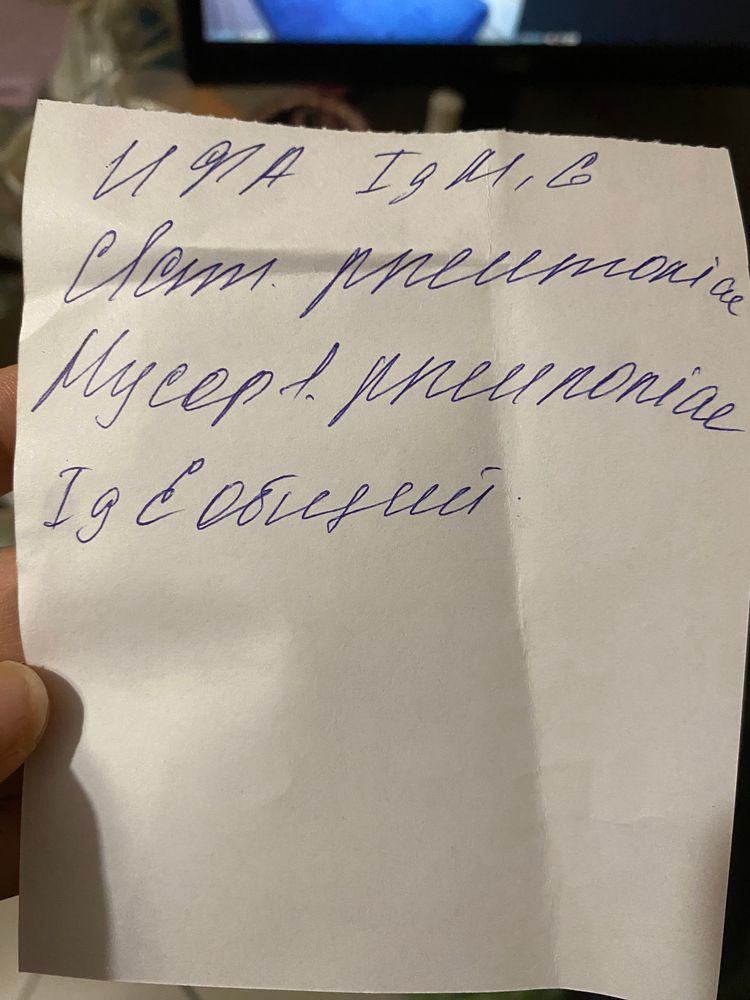 ИФА Ig M, G
Clam. pneumoniae
Mycopl. pneumoniae
Ig E общий.